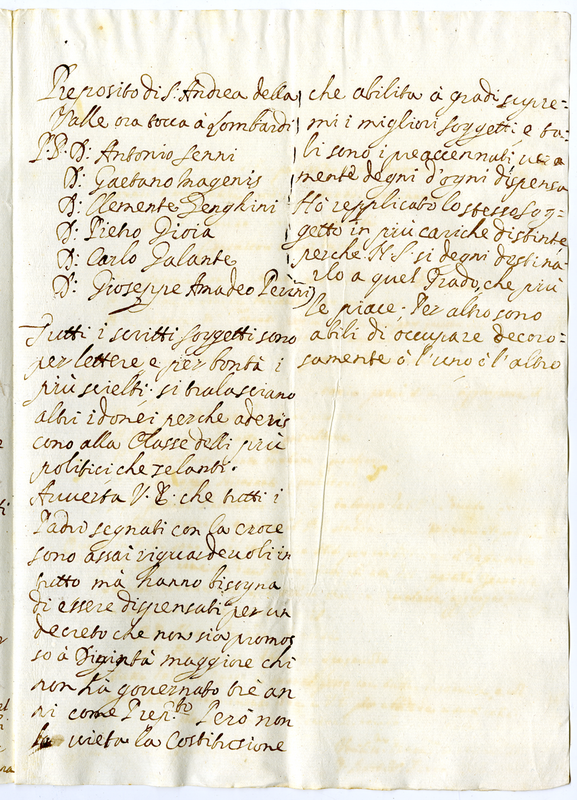 Preposito di S. Andrea della
Valle ora tocca à Lombardi
PP. D. Antonio Senni
D. Gaetano Magenis
D. Clemente Benghini
D. Pietro Gioia
D. Carlo Galante
D. Gioseppe Amadeo Perini
Tutti i scritti soggetti sono
per lettere e per bontà i
più scielti. si tralasciano
altri idonei perche aderis
cono alla Classe delli più
politici che zelanti.
Auuerta V. P. che tutti i
Padri segnati con la croce
sono assai riguardeuoli in
tutto mà hanno bisogna
di essere dispensati per un
decreto che non sia promos
so à Digintà maggiore chi
non hà gouernato trè an
ni come Prep.to Però non
la uieta la Costitusione
che abilita à gradi supre-
mi i migliori soggetti, e ta-
li sono i preaccennati,
mente degni d'ogni dispensa
Hò repplicato lo stesso sog-
getto in più cariche distinte
perche N. S. si degni destina-
rlo a quel Grado, che più
le piace; Per altro sono
abili di occupare decoro-
samente ò l'uno ò l'altro